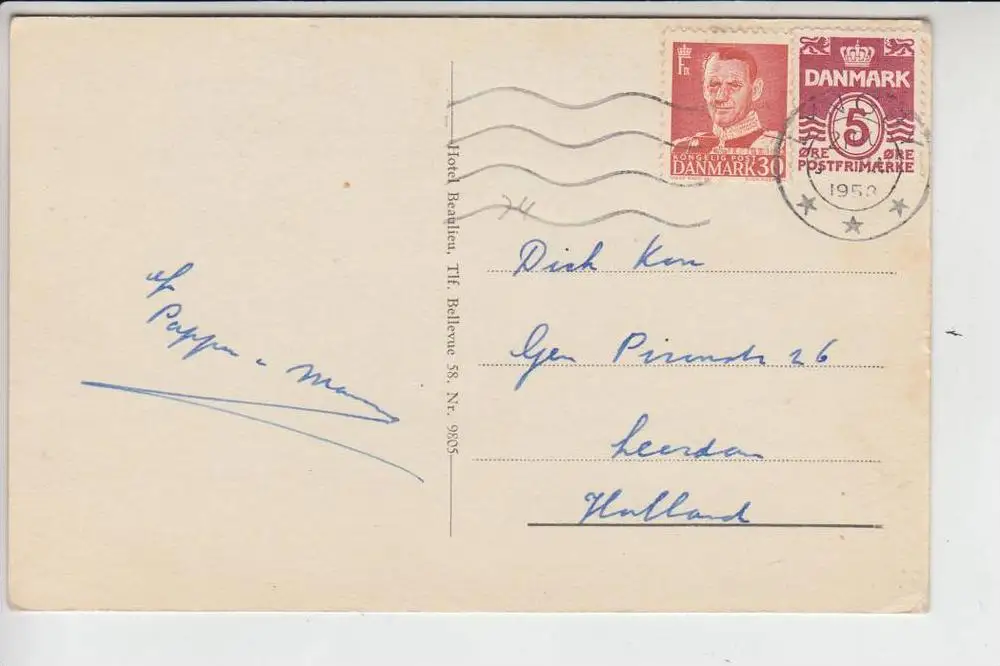 FR
KONGELIG POST
DANMARK 30
DANMARK
5
ØRE ØRE
POSTFRIMÆRKE
1953
74
Hotel Beaulieu, Tlf. Bellevue 58. Nr. 9805
Dick Kon
Gen 26
Leerdam
Holland
Pappa